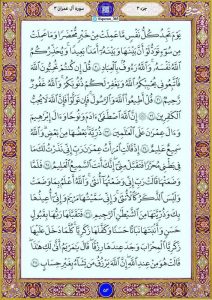 جزء ۳
سورة آل عمران ۳
يَوْمَ تَجِدُ كُلُّ نَفْسٍ مَّا عَمِلَتْ مِنْ خَيْرٍ مُّحْضَرًا وَمَا عَمِلَتْ
مِن سُوٓءٍ تَوَدُّ لَوْ أَنَّ بَيْنَهَا وَبَيْنَهُۥٓ أَمَدًۢا بَعِيدًا وَيُحَذِّرُكُمُ
ٱللَّهُ نَفْسَهُۥ وَٱللَّهُ رَءُوفٌۢ بِٱلْعِبَادِ ٣٠ قُلْ إِن كُنتُمْ تُحِبُّونَ ٱللَّهَ
فَٱتَّبِعُونِى يُحْبِبْكُمُ ٱللَّهُ وَيَغْفِرْ لَكُمْ ذُنُوبَكُمْ وَٱللَّهُ غَفُورٌ
رَّحِيمٌ ٣١ قُلْ أَطِيعُوا۟ ٱللَّهَ وَٱلرَّسُولَ فَإِن تَوَلَّوْا۟ فَإِنَّ ٱللَّهَ لَا يُحِبُّ
ٱلْكَٰفِرِينَ ٣٢ إِنَّ ٱللَّهَ ٱصْطَفَىٰٓ ءَادَمَ وَنُوحًا وَءَالَ إِبْرَٰهِيمَ
وَءَالَ عِمْرَٰنَ عَلَى ٱلْعَٰلَمِينَ ٣٣ ذُرِّيَّةًۢ بَعْضُهَا مِنۢ بَعْضٍ وَٱللَّهُ
سَمِيعٌ عَلِيمٌ ٣٤ إِذْ قَالَتِ ٱمْرَأَتُ عِمْرَٰنَ رَبِّ إِنِّى نَذَرْتُ لَكَ مَا
فِى بَطْنِى مُحَرَّرًا فَتَقَبَّلْ مِنِّىٓ إِنَّكَ أَنتَ ٱلسَّمِيعُ ٱلْعَلِيمُ ٣٥ فَلَمَّا
وَضَعَتْهَا قَالَتْ رَبِّ إِنِّى وَضَعْتُهَآ أُنثَىٰ وَٱللَّهُ أَعْلَمُ بِمَا وَضَعَتْ
وَلَيْسَ ٱلذَّكَرُ كَٱلْأُنثَىٰ وَإِنِّى سَمَّيْتُهَا مَرْيَمَ وَإِنِّىٓ أُعِيذُهَا
بِكَ وَذُرِّيَّتَهَا مِنَ ٱلشَّيْطَٰنِ ٱلرَّجِيمِ ٣٦ فَتَقَبَّلَهَا رَبُّهَا بِقَبُولٍ
حَسَنٍ وَأَنۢبَتَهَا نَبَاتًا حَسَنًا وَكَفَّلَهَا زَكَرِيَّا كُلَّمَا دَخَلَ عَلَيْهَا
زَكَرِيَّا ٱلْمِحْرَابَ وَجَدَ عِندَهَا رِزْقًا قَالَ يَٰمَرْيَمُ أَنَّىٰ لَكِ هَٰذَا
قَالَتْ هُوَ مِنْ عِندِ ٱللَّهِ إِنَّ ٱللَّهَ يَرْزُقُ مَن يَشَآءُ بِغَيْرِ حِسَابٍ ٣٧
٥٤